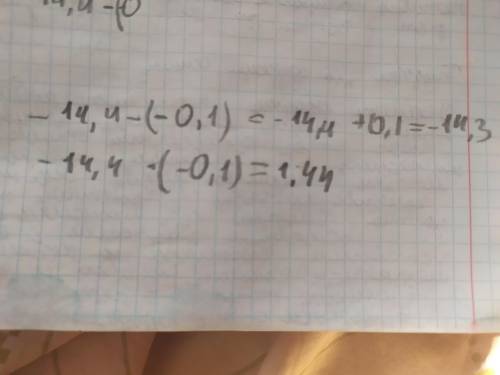 - 14,4 - (- 0,1) = - 14,4 + 0,1 = - 14,3
- 14,4 · (- 0,1) = 1,44